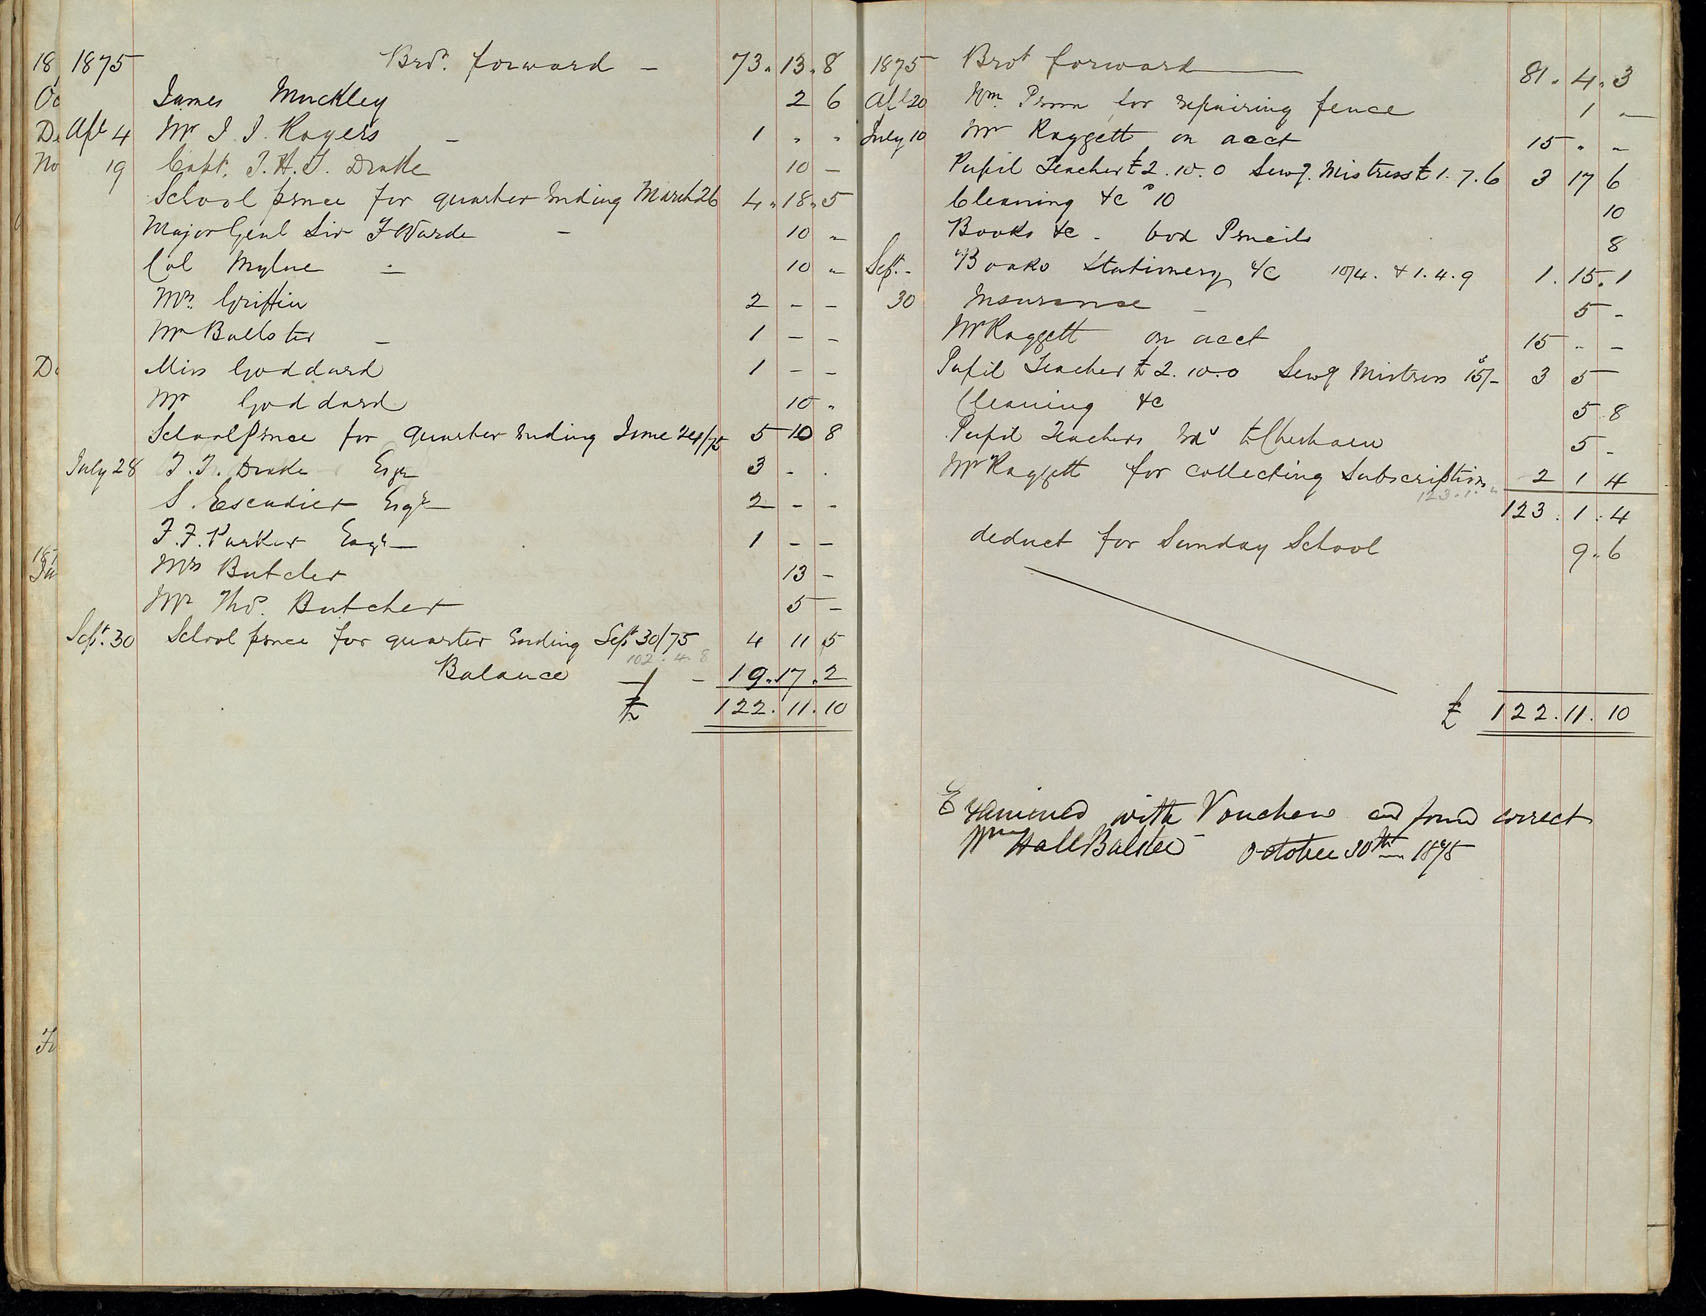 1875 Brot. forward - 73. 13. 8
James Muckley 2 6
Apl 4 Mr J J Rogers - 1 " "
19 Capt. T. H. T. Drake 10 -
School pence for quarter Ending March 26 4. 18. 5
Major Genl Sir F Warde - 10 "
Col Mylne - 10 "
Mr. Griffin 2 - -
Mr Balster - 1 - -
Miss Goddard 1 - -
Mr Goddard 10 "
School pence for quarter Ending June 24/75 5 10 8
July 28 T. T. Drake Esqr 3 - .
S. Escudier Esqr 2 - -
F. F. Parker Esqr 1 - -
Mrs Butcher 13 -
Mr Thos. Butcher 5 -
Sept. 30 School pence for quarter Ending Sept 30/75 4 11 5
102. 4. 8
Balance - 19. 17. 2
£ 122. 11. 10
18
Oc
De
No
De
187
Ja
1875 Brot forward 81. 4. 3
Apl 20 Wm. for repairing fence 1 -
July 10 Mr Raggett on acct 15 " -
Pupil Teacher £2. 10. 0 Sewg. Mistress £1. 7. 6 3 17 6
Cleaning &c 10 10
Books &c - box Pencils 8
Sept. - Books Stationery &c 10/4. & 1. 4. 9 1. 15. 1
30 Insurance - 5 -
Mr Raggett on acct 15 - -
Pupil Teacher £2. 10. 0 Sewg Mistress 15/- 3 5
Cleaning &c 5 8
Pupil Teachers to Chesham 5 -
Mr Raggett for collecting Subscriptions 2 1 4
123. 1.
123. 1. 4
deduct for Sunday School 9. 6
£ 122. 11. 10
Examined with Vouchers and found correct
Wm Hall Balster October 30th 1875